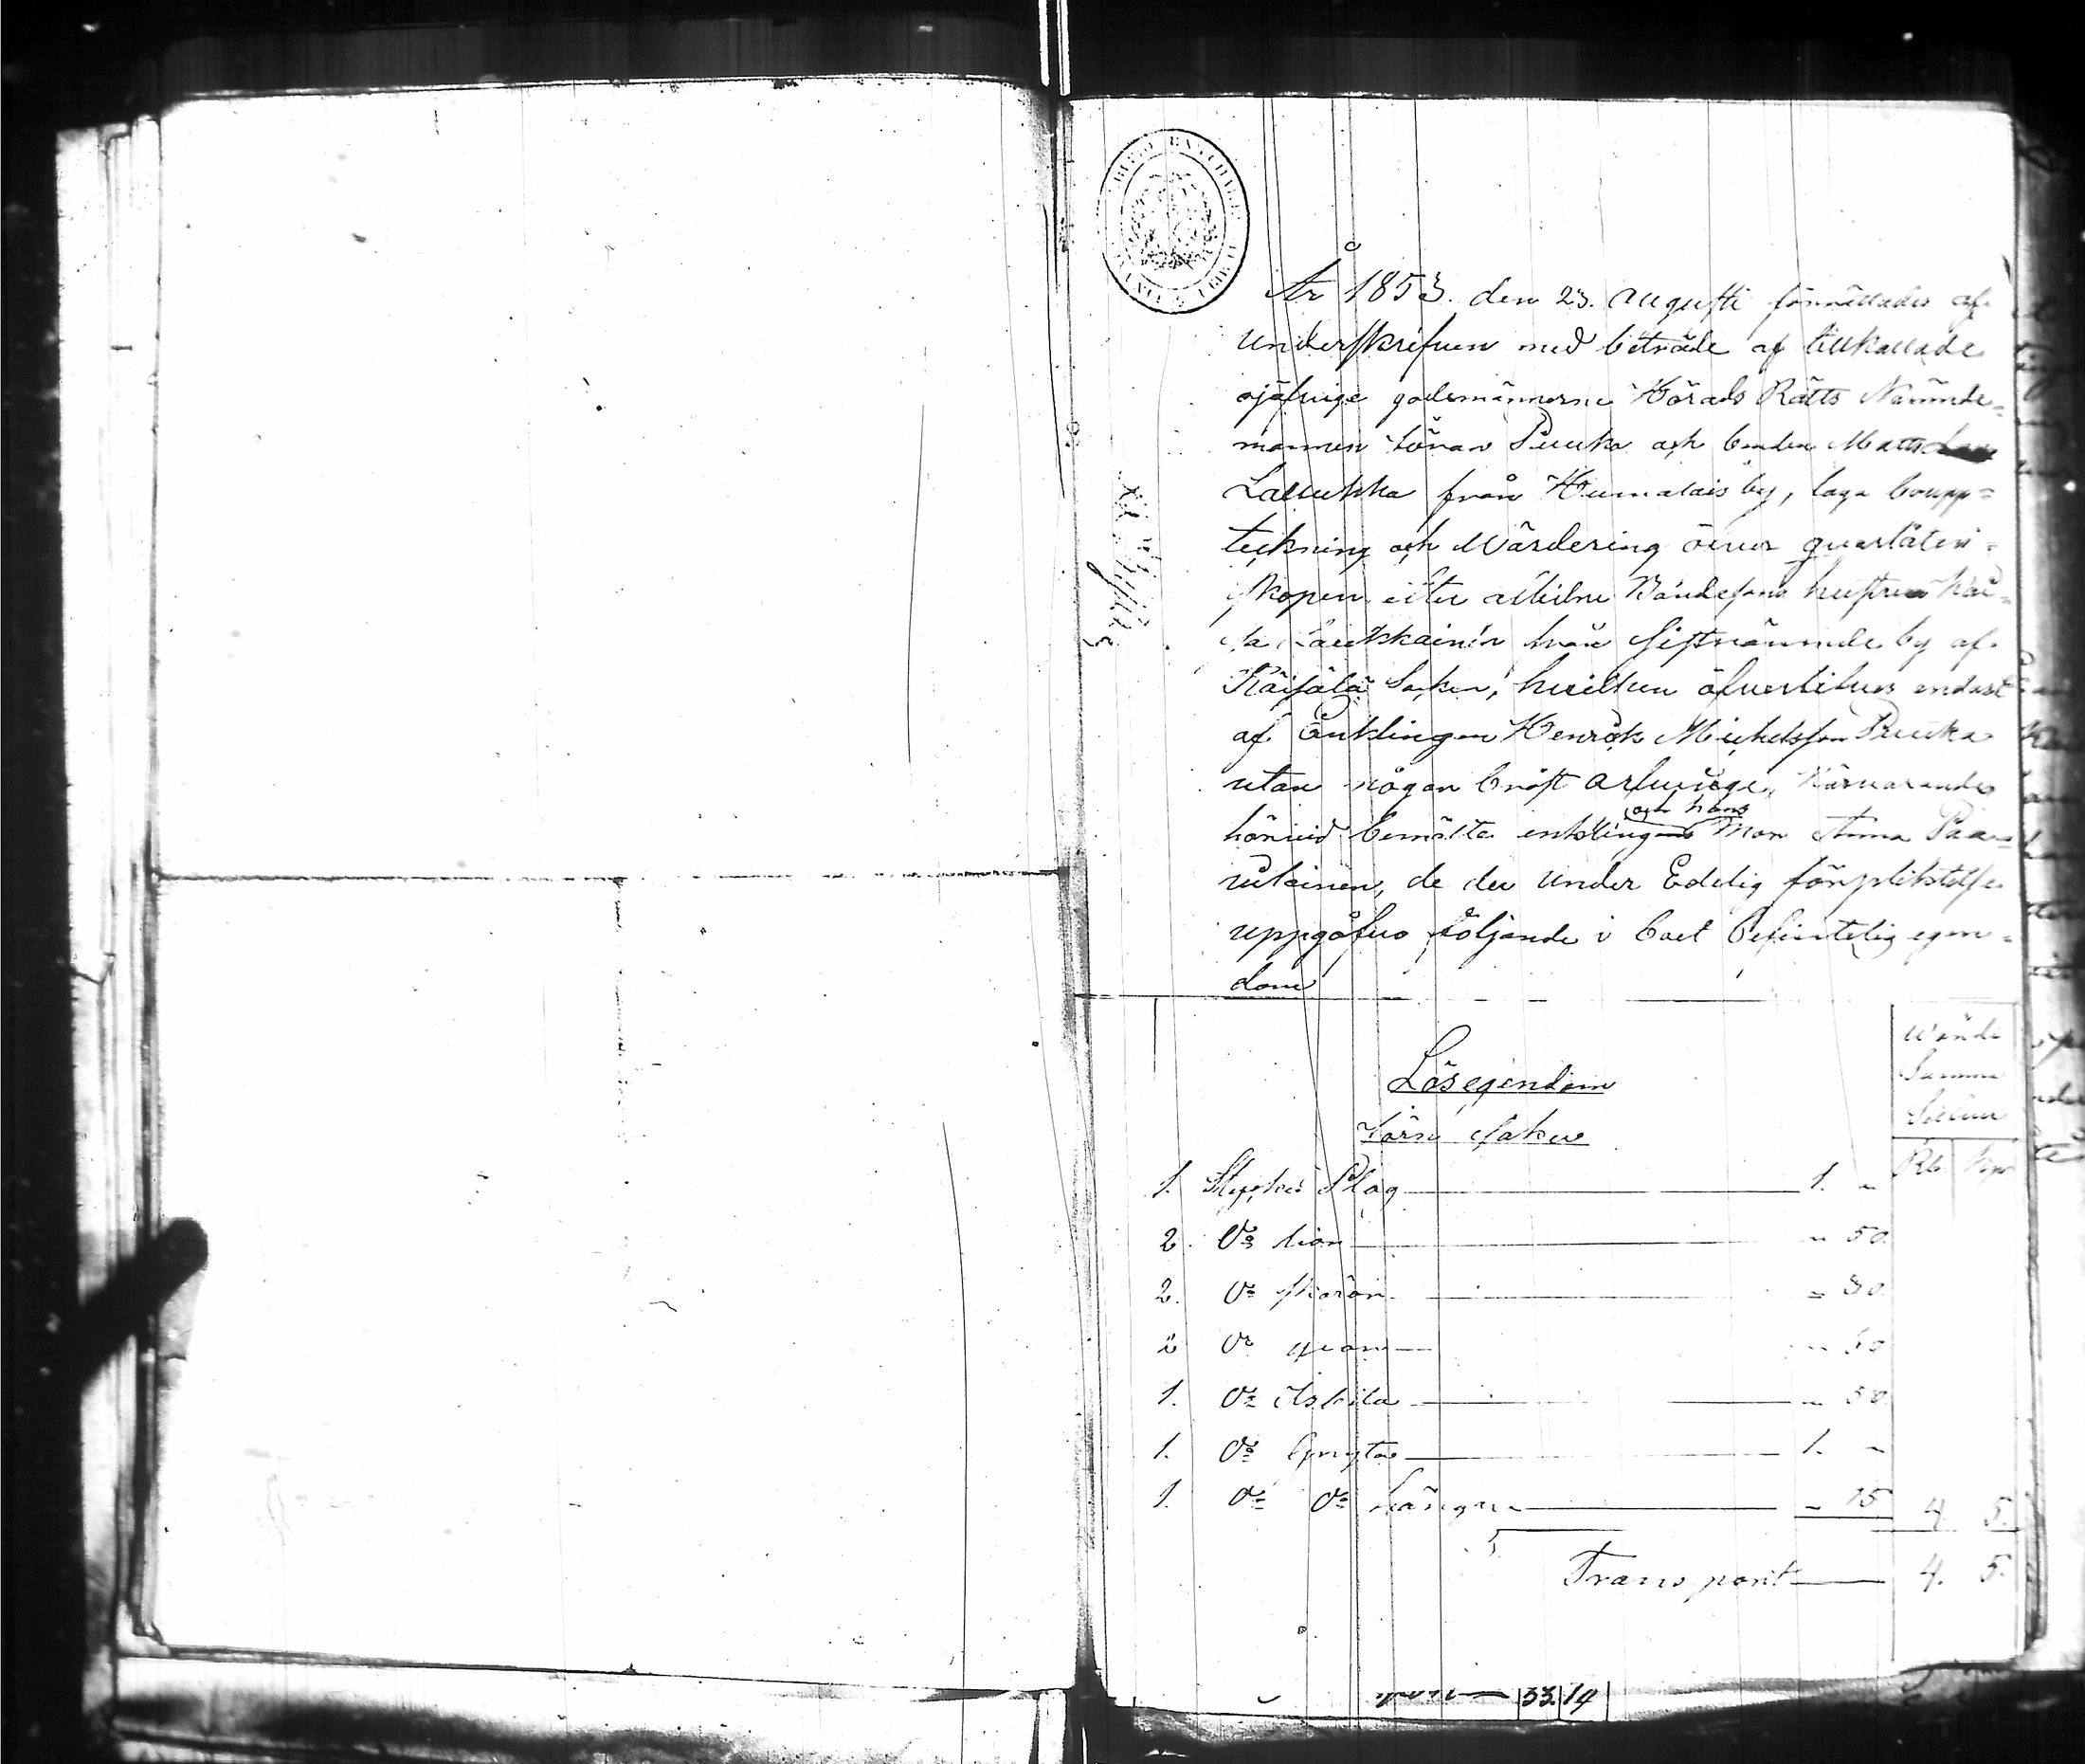 År 1853. den 23. Augusti förrättades af
underskrifven med biträde af tillkallade
ojäfvige godemännerne Härads Rätts Nämnde-
mannen Göran Puukka och bonden Matts
Laukka från Humalais by, laga boupp-
teckning och Wärdering öfver qvarlåten-
skapen efter aflidne Bondesons hustrun
från sistnämnde by af
Räisälä Soken, hvilken öfverlefves endast
af Änklingen Henrik Michelsson Puukka
utan någon bröst arfvinge, Närvarande
och hans
härvid bemälte enkling Mor Anna Paa-
vilainen, de der under Edelig förpliktelse
uppgåfvo följande i boet befintelig egen-
dom
Wärde
Summa
Silfver
Lösegendom
Järn saker
Rb. Kop
1. Stycke Plog 1. "
2. Do lior " 50.
2. Do skäror " 30.
2 Do " 50
1. Do Isbila " 50.
1. Do Gryta 1. "
1. Do Do " 15 4. 5.
Transport 4. 5.
33 14